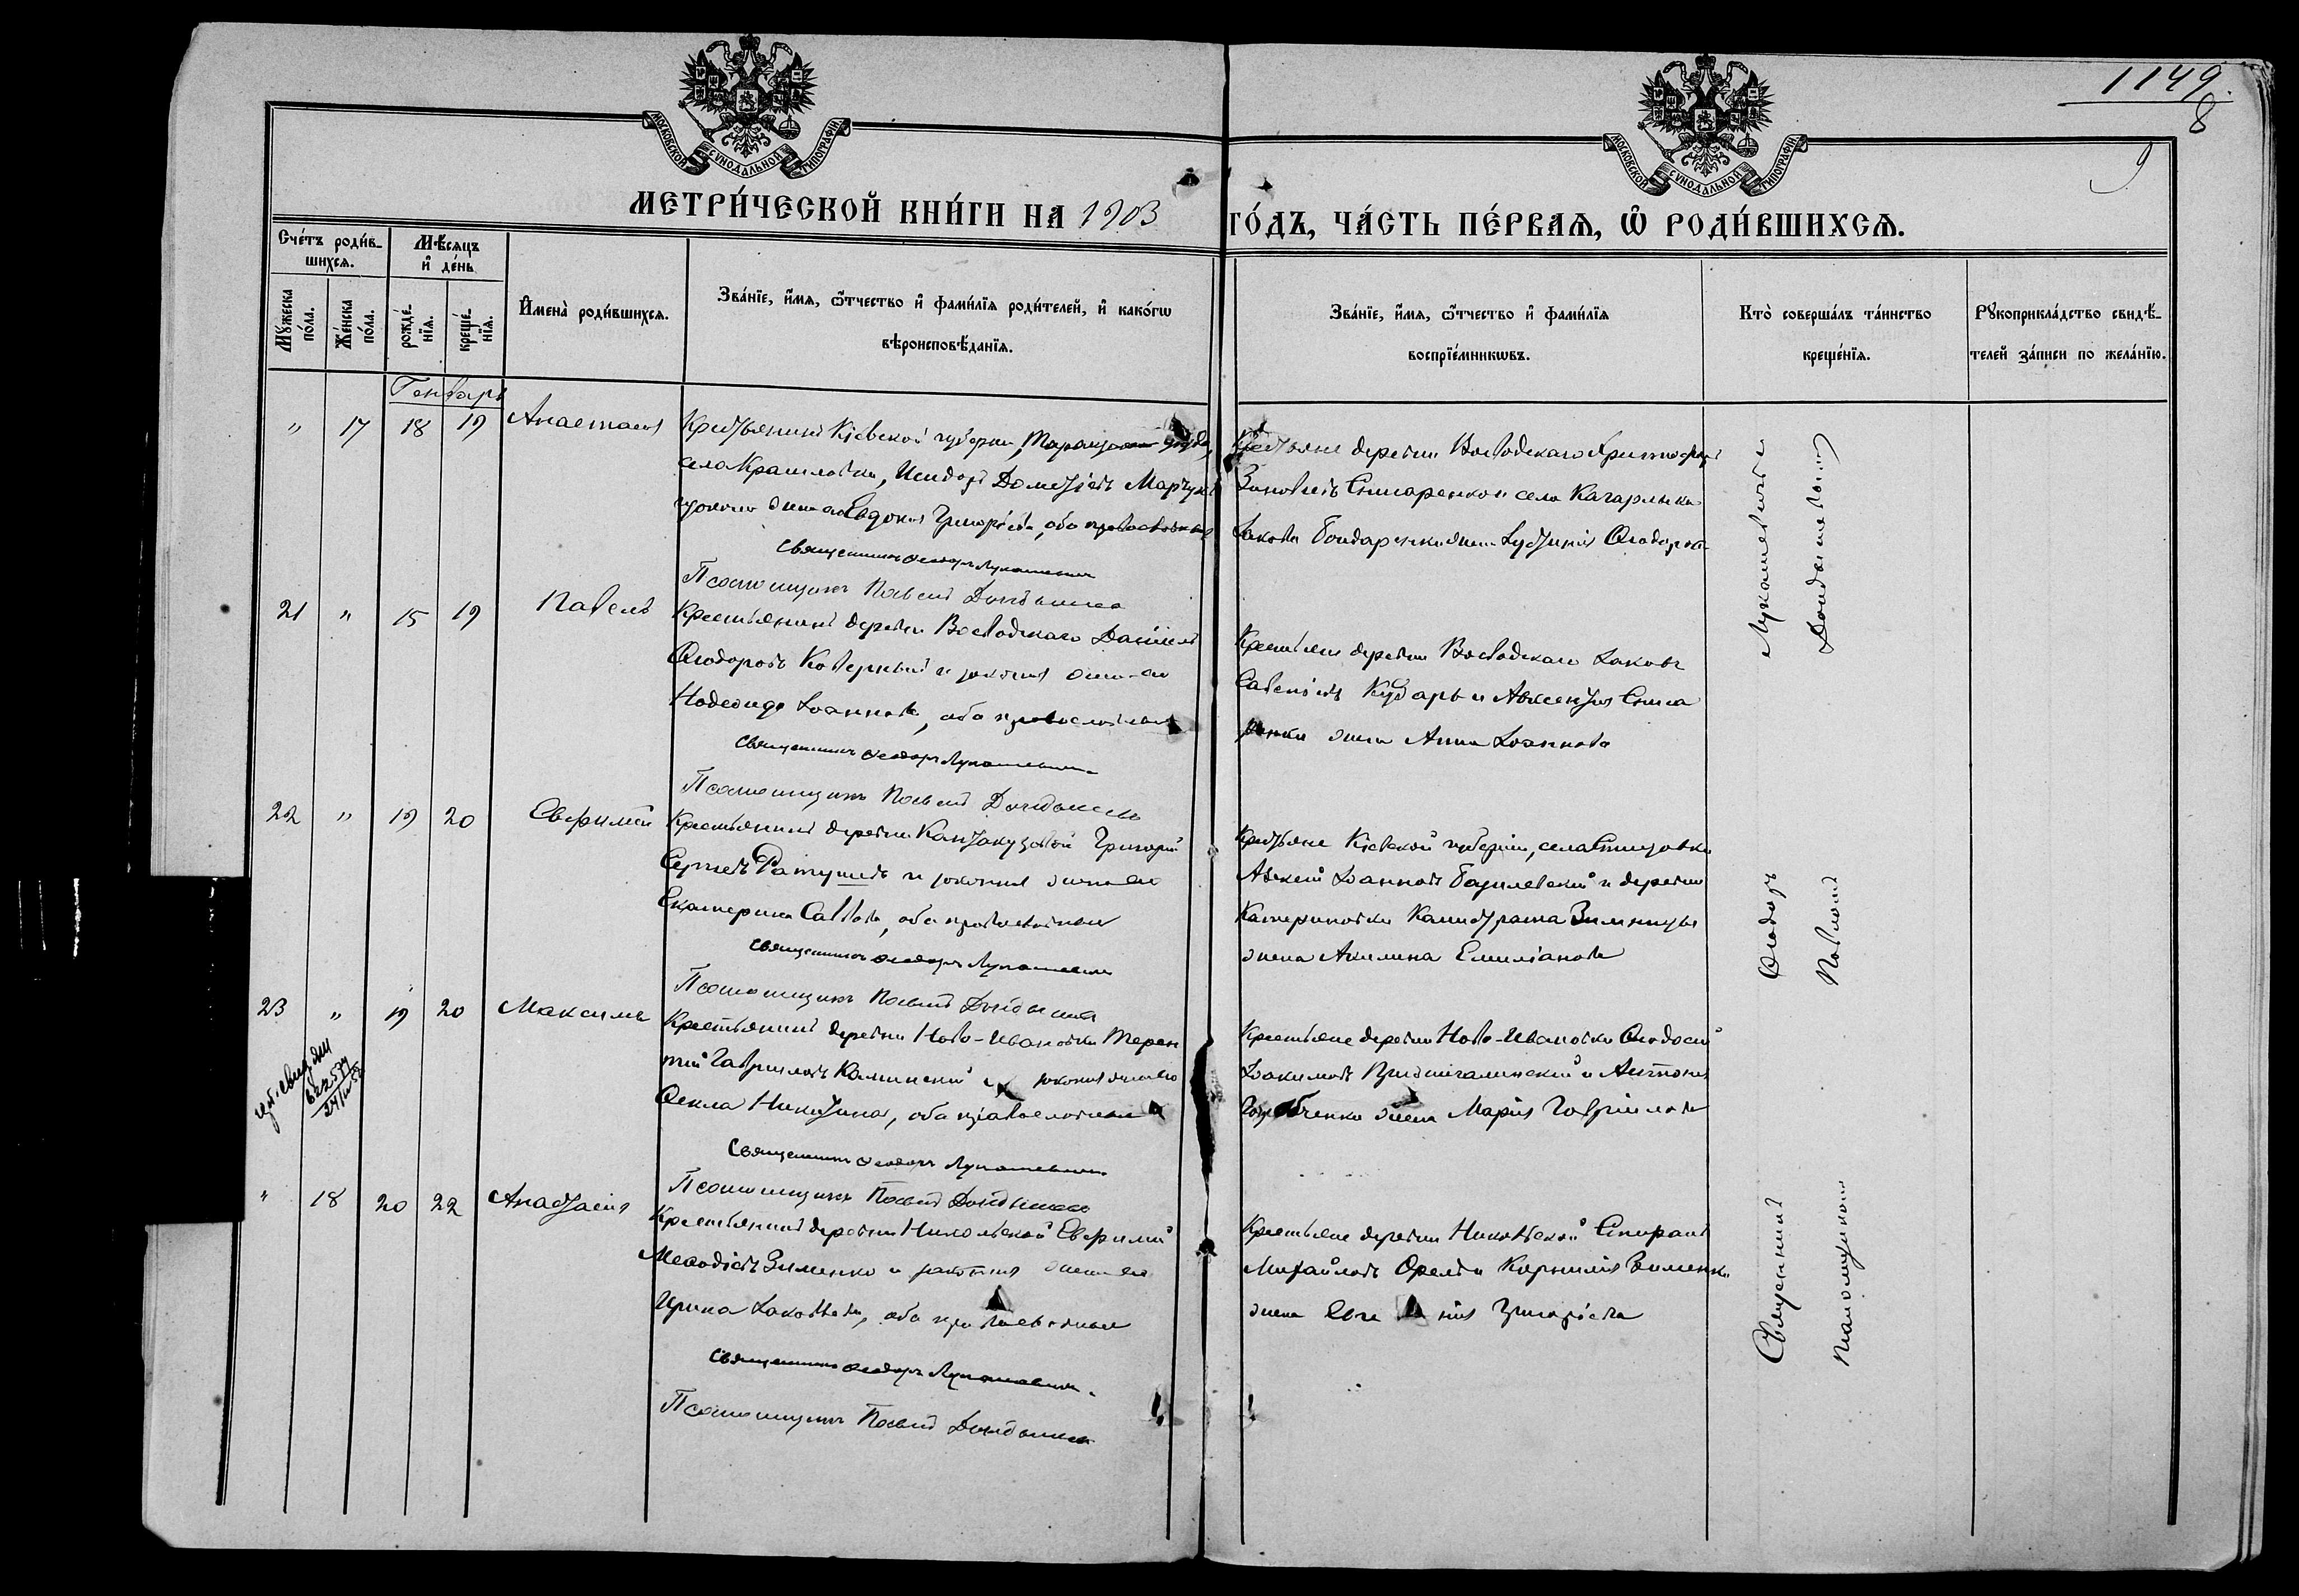 1149.
8
9
МОСКОВСКОЙ СѴНОДАЛЬНОЙ ТИПОГРАФІИ
МОСКОВСКОЙ СѴНОДАЛЬНОЙ ТИПОГРАФІИ
МЕТРИ́ЧЕСКОЙ КНИ́ГИ НА 1903
ГО́ДЪ, ЧА́СТЬ ПЕ́РВАѦ, Ѡ҆ РОДИ́ВШИХСѦ.
Сче́тъ роди́в-
шихсѧ.
Мꙋ́жеска
по́ла.
Же́нска
по́ла.
Мѣ́сѧцъ
и҆ де́нь
рожде́-
нїѧ.
креще́-
нїѧ.
И҆мена̀ роди́вшихсѧ.
Зва́нїе, и҆́мѧ, ѻ҆́тчество и҆ фами́лїѧ роди́телей, и҆ како́гѡ
вѣроисповѣ́данїѧ.
Зва́нїе, и҆́мѧ, ѻ҆́тчество и҆ фами́лїѧ
воспрїе́мникѡвъ.
Кто̀ соверша́лъ та́инство
креще́нїѧ.
Рꙋкоприкла́дство свидѣ́-
телей за́писи по жела́нїю.
Генварь
" 17 18 19 Анастасія
Крестьянинъ Кіевской губерніи, Таращанск уѣзда,
села Крашловки, Исидоръ Дометіевъ Марчук
законная жена его Евдокія Григоріева, оба православные
Священникъ Ѳеодоръ Лукашевичъ
Псаломщикъ Павелъ
Крестьяне деревни Воеводскаго Христофоръ
Зиновьевъ Снисаренко и села Кагарлыка
Іакова Бондаренки жена Евгенія Ѳеодорова
21 " 15 19 Павелъ
Крестьянинъ деревни Воеводскаго Даніилъ
Ѳеодоровъ Коверный и законная жена его
Надежда Іоаннова, оба православные
Священникъ Ѳеодоръ Лукашевичъ
Псаломщикъ Павелъ
Крестьяне деревни Воеводскаго Іаковъ
Савельевъ Кубарь и Авксентія Сниса
ренки жена Анна Іоаннова
22 " 19 20 Евфимій
Крестьянинъ деревни Кантакузовой Григорій
Сергіевъ Ратушнъ и законная жена его
Екатерина Саввова, оба православные
Священникъ Ѳеодоръ Лукашевичъ
Псаломщикъ Павелъ
Крестьяне Кіевской губерніи, села
Алексій Іоанновъ Базилевскій и деревни
Катериновки Калистрата Зимницы
жена Акилина Емиліанова
23 " 19 20 Максимъ
Крестьянинъ деревни Ново-Ивановки Терен
тій Гавриловъ Каминскій и законная жена его
Ѳекла Никитина, оба православные
Священникъ Ѳеодоръ Лукашевичъ
Псаломщикъ Павелъ
Крестьяне деревни Ново-Ивановки Ѳеодосій
Іоакимовъ и Антонія
жена Марія Гавріилова
" 18 20 22 Анастасія
Крестьянинъ деревни Никольской Евфимій
Меѳодіевъ Зименко и законная жена его
Ирина Іаковлева, оба православные
Священникъ Ѳеодоръ Лукашевичъ
Псаломщикъ Павелъ
Крестьяне деревни Никольской Спиридонъ
Михайловъ Орелъ и Корнилія Зименки
жена нія Григоріева
Священникъ Ѳеодоръ Лукашевичъ
Псаломщикъ Павелъ